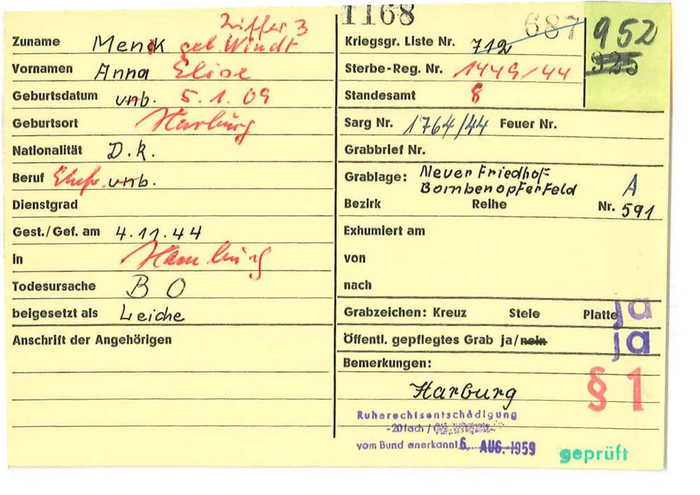 Ziffer 3
Zuname Menk geb. Windt
Vornamen Anna Elise
Geburtsdatum unb. 5.1.09
Geburtsort Harburg
Nationalität D.R.
Beruf Ehefr. unb.
Dienstgrad
Gest./Gef. am 4.11.44
in Hamburg
Todesursache B O
beigesetzt als Leiche
Anschrift der Angehörigen
1168 687 952
Kriegsgr. Liste Nr. 712 325
Sterbe-Reg. Nr. 1449/44
Standesamt 8
Sarg Nr. 1764/44 Feuer Nr.
Grabbrief Nr.
Grablage: Neuer Friedhof
Bombenopferfeld A
Bezirk Reihe Nr. 591
Exhumiert am
von
nach
Grabzeichen: Kreuz Stele Platte ja
Öffentl. gepflegtes Grab ja/nein ja
Bemerkungen:
Harburg § 1
Ruherechtsentschädigung
-20fach /
vom Bund anerkannt 6. AUG. 1959
geprüft